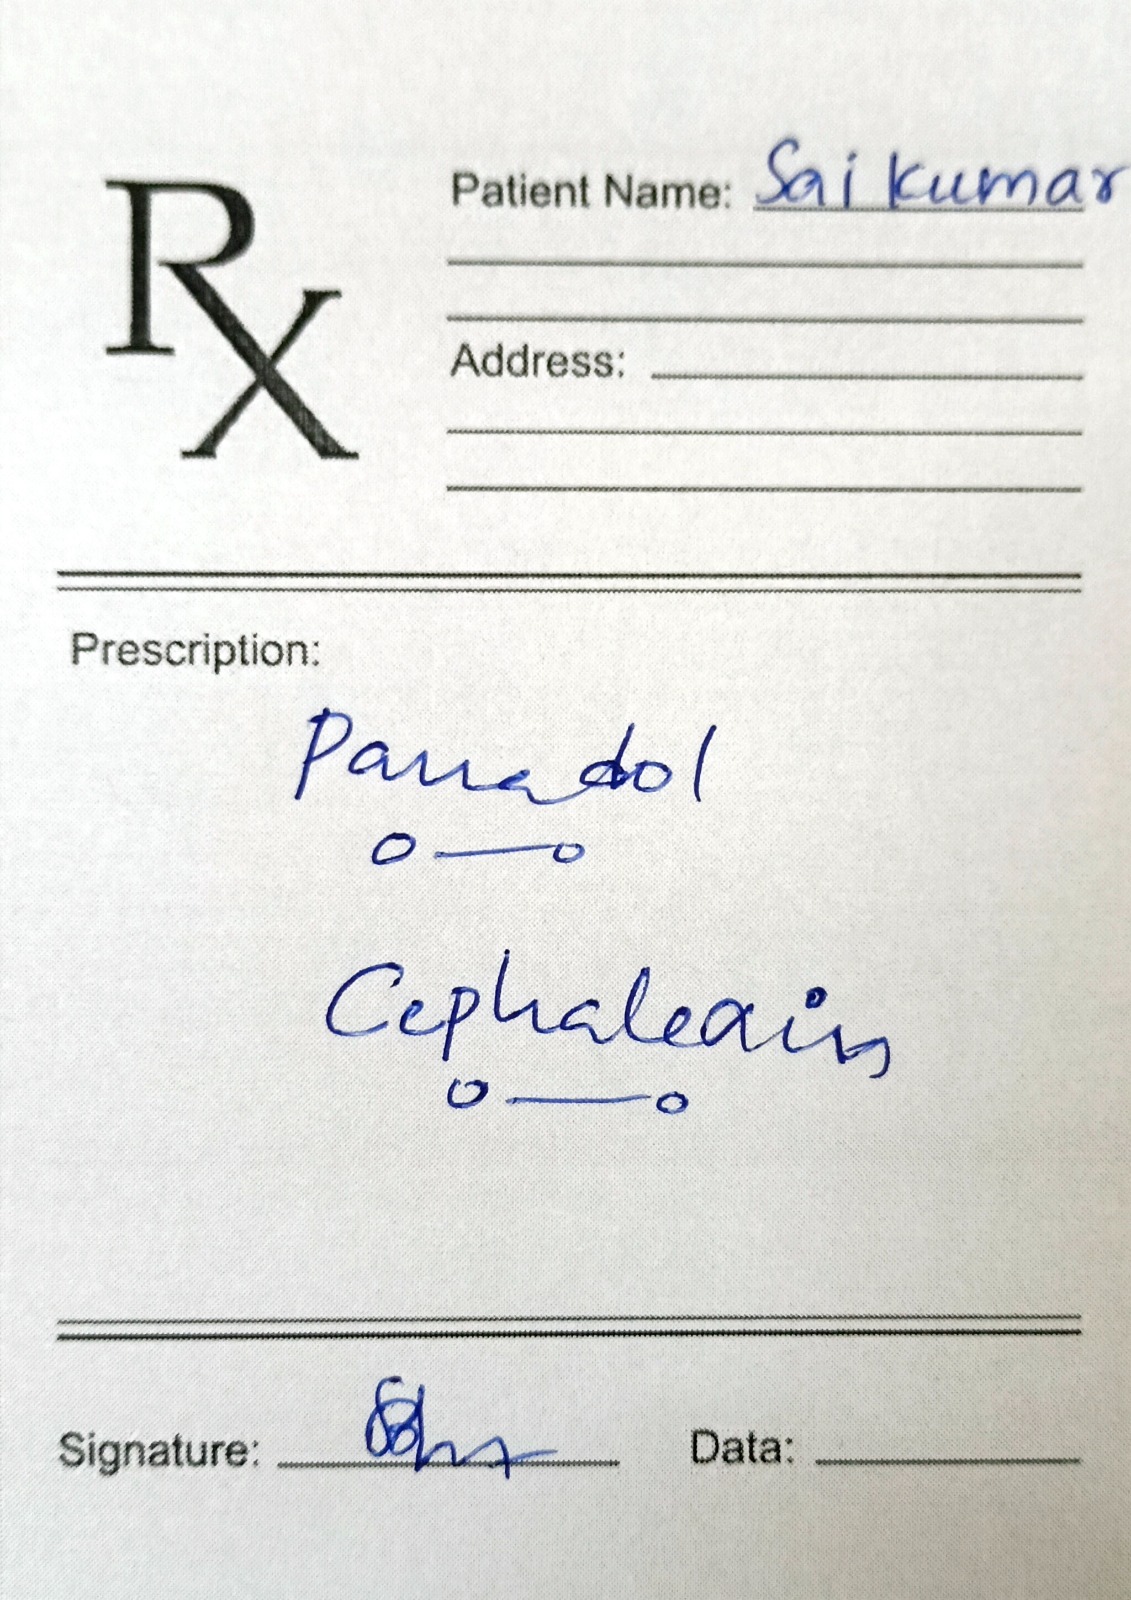 Rx
Patient Name: Sai kumar
Address:
Prescription:
Panadol
o — o
Cephalexin
o — o
Signature:
Data: